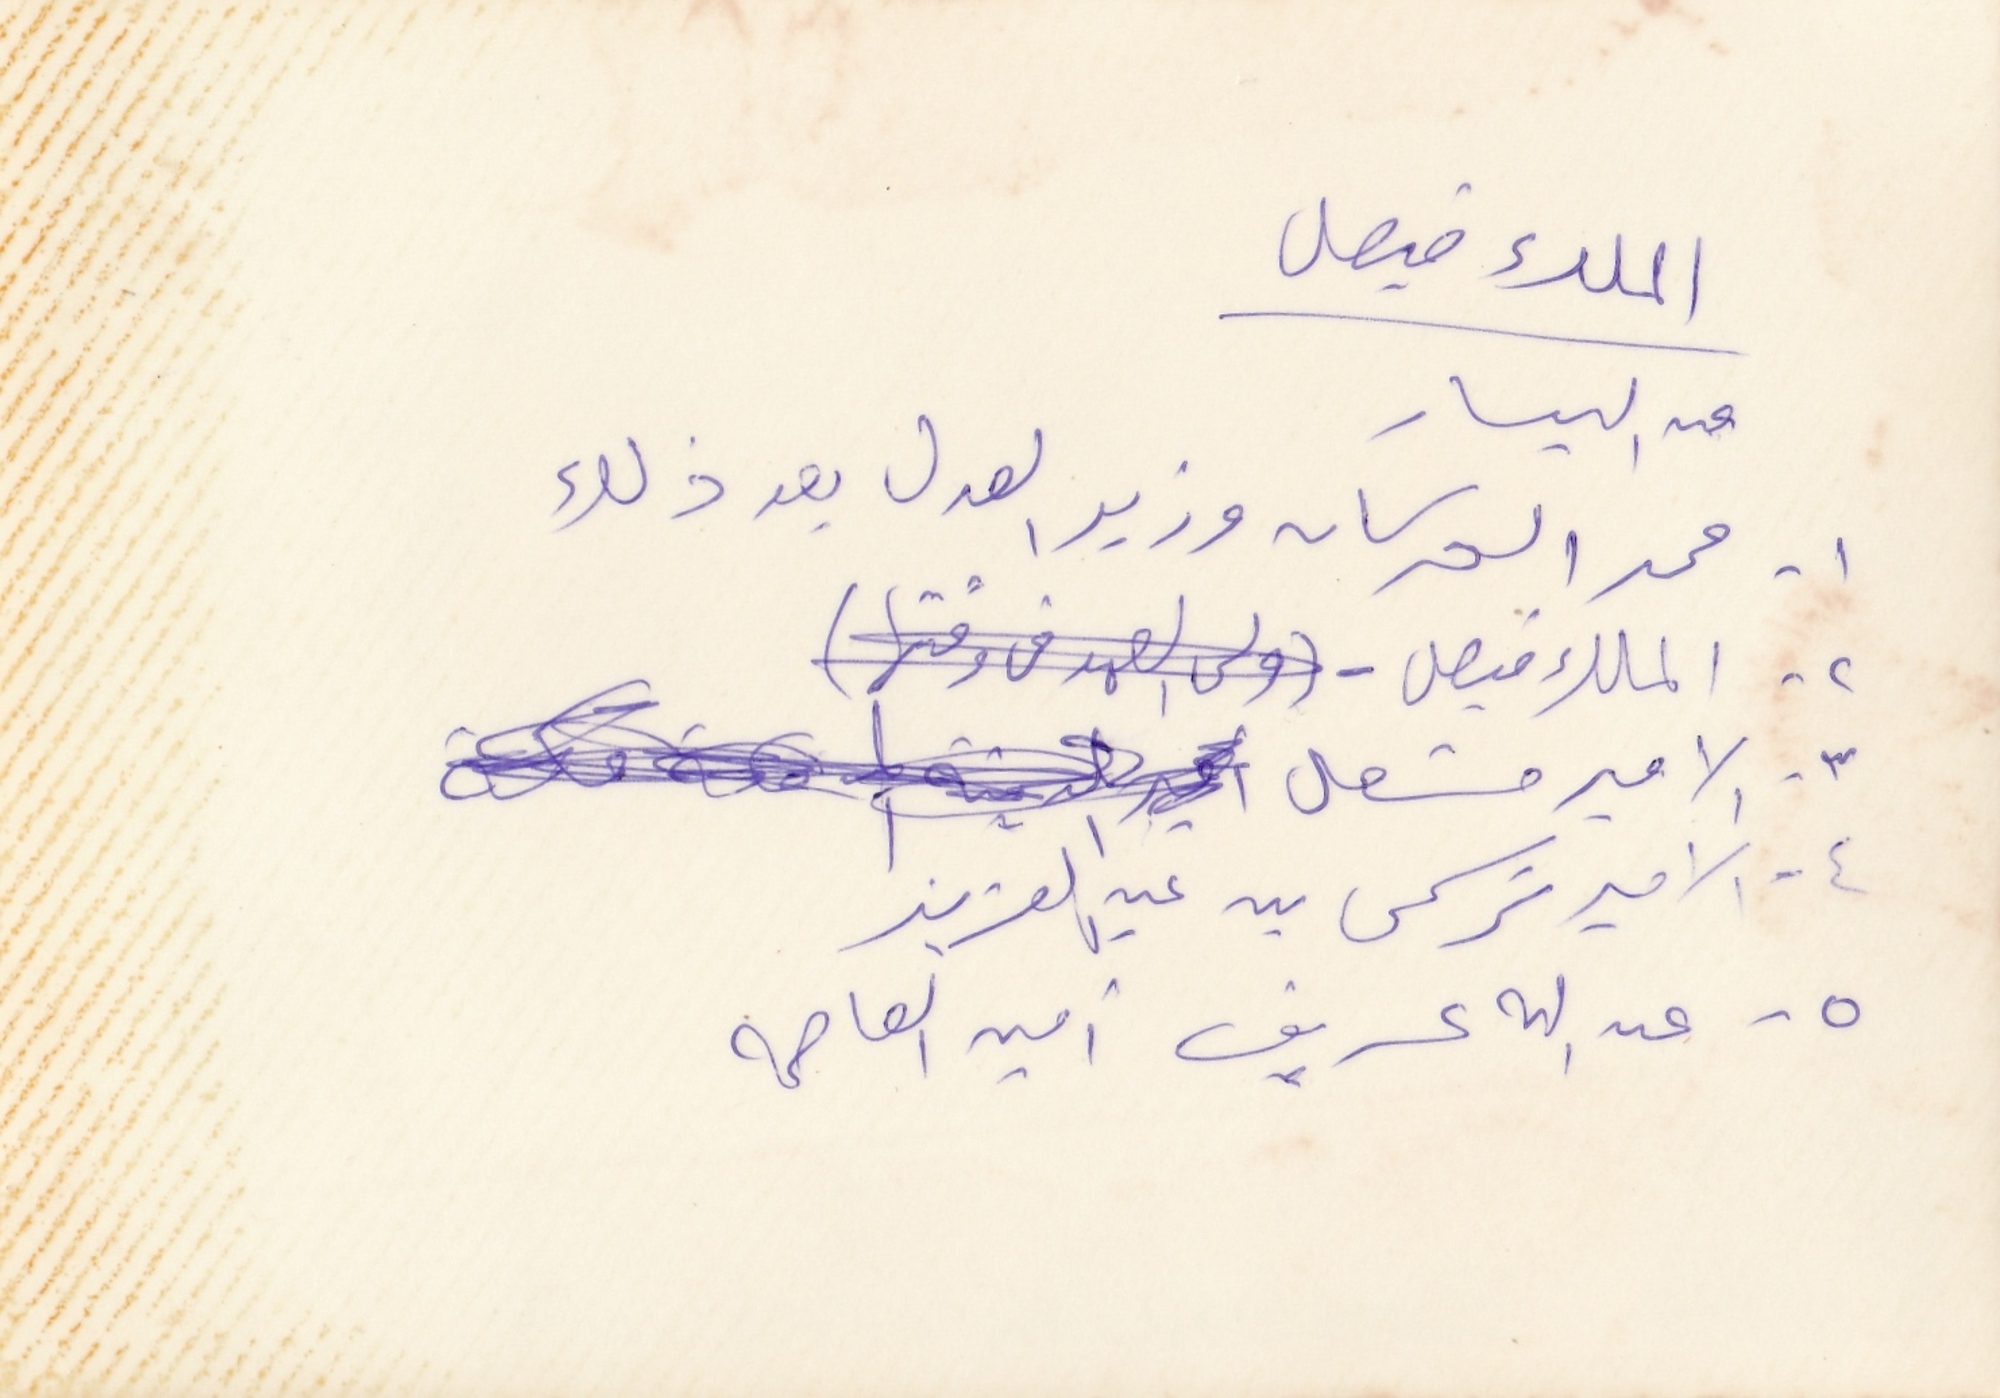 الملك فيصل
عن اليسار
١- محمد الحركان وزير العدل بعد ذلك
٢- الملك فيصل - (ولى العهد فى وقتها)
٣- الامير مشعل
٤- الامير تركى بن عبد العزيز
٥- عبد الله عريف أمين العاصمة